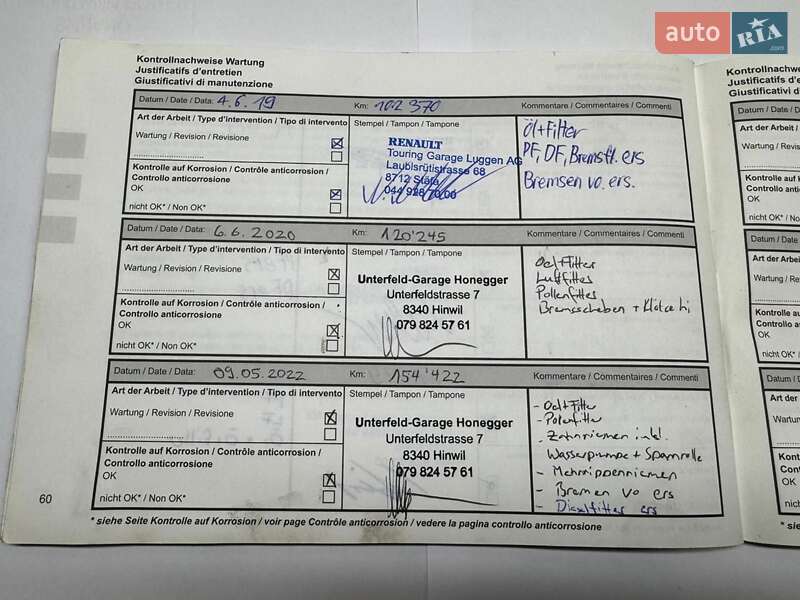 auto RIA .com
Kontrollnachweise Wartung
Justificatifs d'entretien
Giustificativi di manutenzione
Datum / Date / Data: 4.6.19 Km: 102 370 Kommentare / Commentaires / Commenti
Art der Arbeit / Type d'intervention / Tipo di intervento
Wartung / Revision / Revisione
Kontrolle auf Korrosion / Contrôle anticorrosion /
Controllo anticorrosione
OK
nicht OK* / Non OK*
Stempel / Tampon / Tampone
RENAULT
Touring Garage Luggen AG
Laubisrütistrasse 68
8712 Stäfa
Öl+Filter
PF, DF, Bremsfl. ers
Bremsen vo. ers.
Datum / Date / Data: 6.6.2020 Km: 120'245 Kommentare / Commentaires / Commenti
Art der Arbeit / Type d'intervention / Tipo di intervento
Wartung / Revision / Revisione
Kontrolle auf Korrosion / Contrôle anticorrosion /
Controllo anticorrosione
OK
nicht OK* / Non OK*
Stempel / Tampon / Tampone
Unterfeld-Garage Honegger
Unterfeldstrasse 7
8340 Hinwil
079 824 57 61
Oel+Filter
Luftfilter
Pollenfilter
Bremsscheben + Klötze hi
Datum / Date / Data: 09.05.2022 Km: 154'422 Kommentare / Commentaires / Commenti
Art der Arbeit / Type d'intervention / Tipo di intervento
Wartung / Revision / Revisione
Kontrolle auf Korrosion / Contrôle anticorrosion /
Controllo anticorrosione
OK
nicht OK* / Non OK*
Stempel / Tampon / Tampone
Unterfeld-Garage Honegger
Unterfeldstrasse 7
8340 Hinwil
079 824 57 61
- Oel+Filter
- Polenfilter
- Zahnriemen inkl.
Wasserpumpe + Spannrolle
- Mehrrippenriemen
- Bremen vo ers
- Dieselfilter ers
60
* siehe Seite Kontrolle auf Korrosion / voir page Contrôle anticorrosion / vedere la pagina controllo anticorrosione
Kontrollnachwe
Justificatifs d'e
Giustificativi di
Datum / Date /
Art der Arbeit
Wartung / Rev
Kontrolle auf K
Controllo antic
OK
nicht OK* / No
Datum / Date
Art der Arbei
Wartung / Re
Kontrolle auf
Controllo ant
OK
nicht OK* / N
Datum / Da
Art der Arb
Wartung /
Kontrolle a
Controllo a
OK
nicht OK*
* siehe S